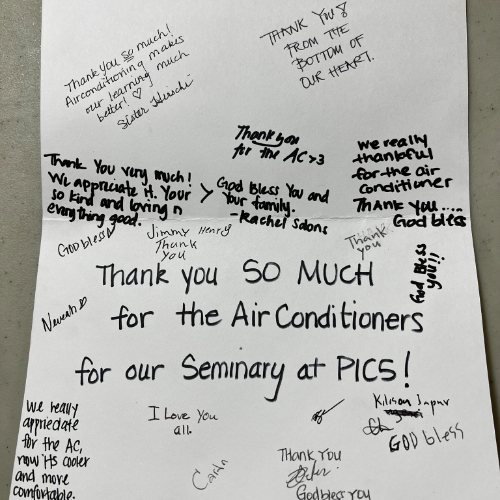 Thank you so much!
Airconditioning makes
our learning much
better! ♡
THANK YOU
FROM THE
BOTTOM OF
OUR HEART.
Thank you
for the AC <3
we really
thankful
for the air
conditioner
THANK YOU....
God bless
Thank You very much!
We appreciate it. Your
so kind and loving n
everything good.
God Bless You and
Your family.
- Rachel Salons
God bless
Jimmy Henry
Thank
you
Thank
you
God Bless
you!!
Thank you SO MUCH
for the Air Conditioners
for our Seminary at PICS!
Neveah
we really
appreciate
for the AC,
now its cooler
and more
comfortable.
I Love You
all.
GOD bless
Thank You
God bless you